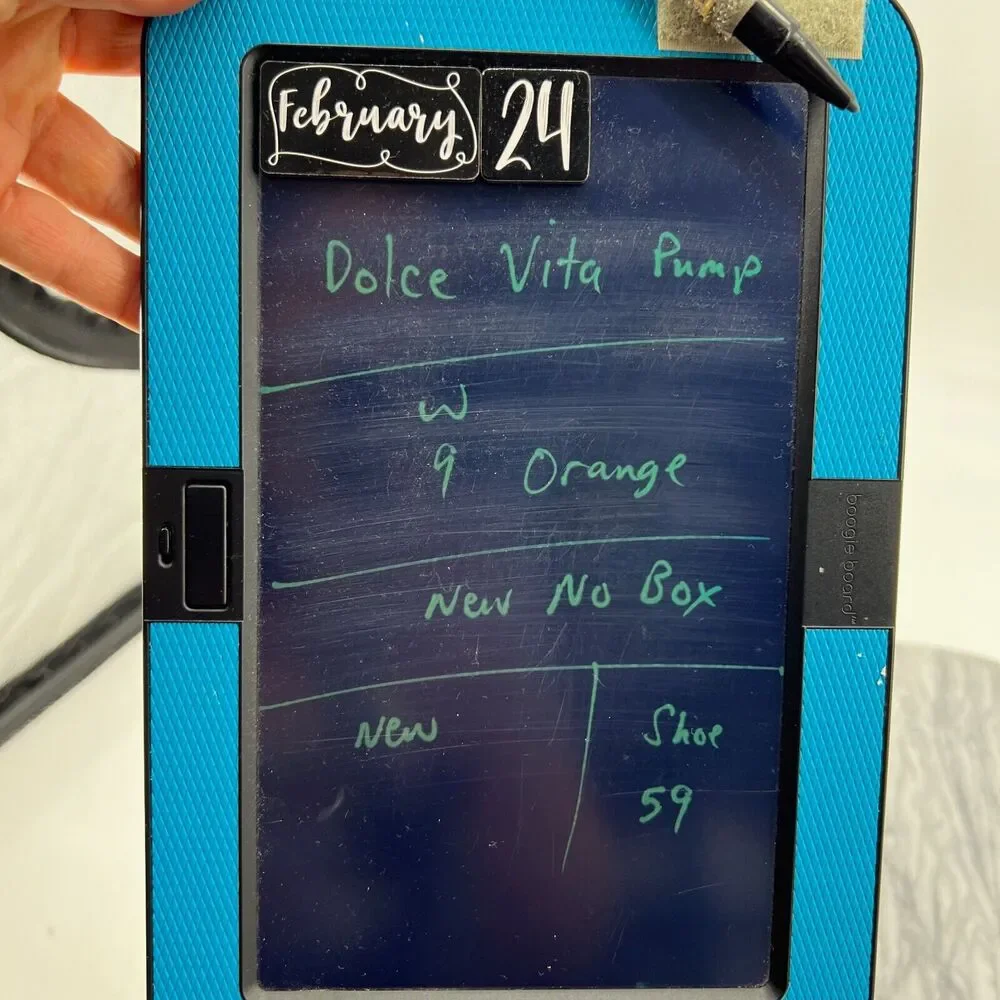 February 24
Dolce Vita Pump
W
9 Orange
New No Box
New
Shoe
59
boogie board™